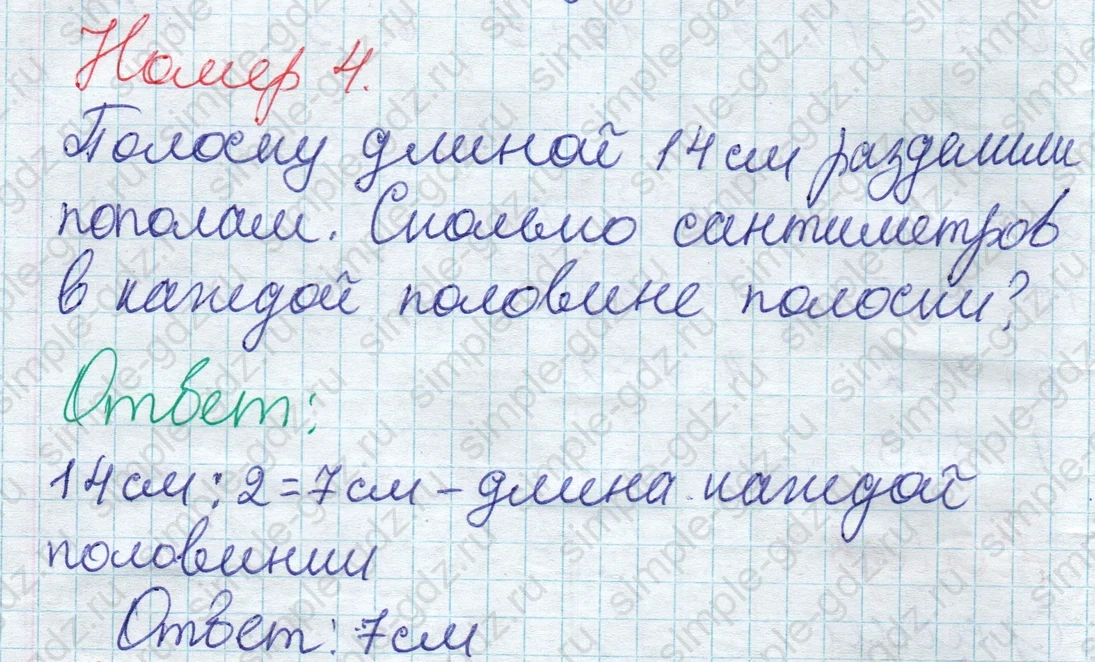 Номер 4.
Полоску длиной 14 см разделили
пополам. Сколько сантиметров
в каждой половине полоски?
Ответ:
14 см : 2 = 7 см – длина каждой
половинки
Ответ: 7 см
simple-gdz.ru